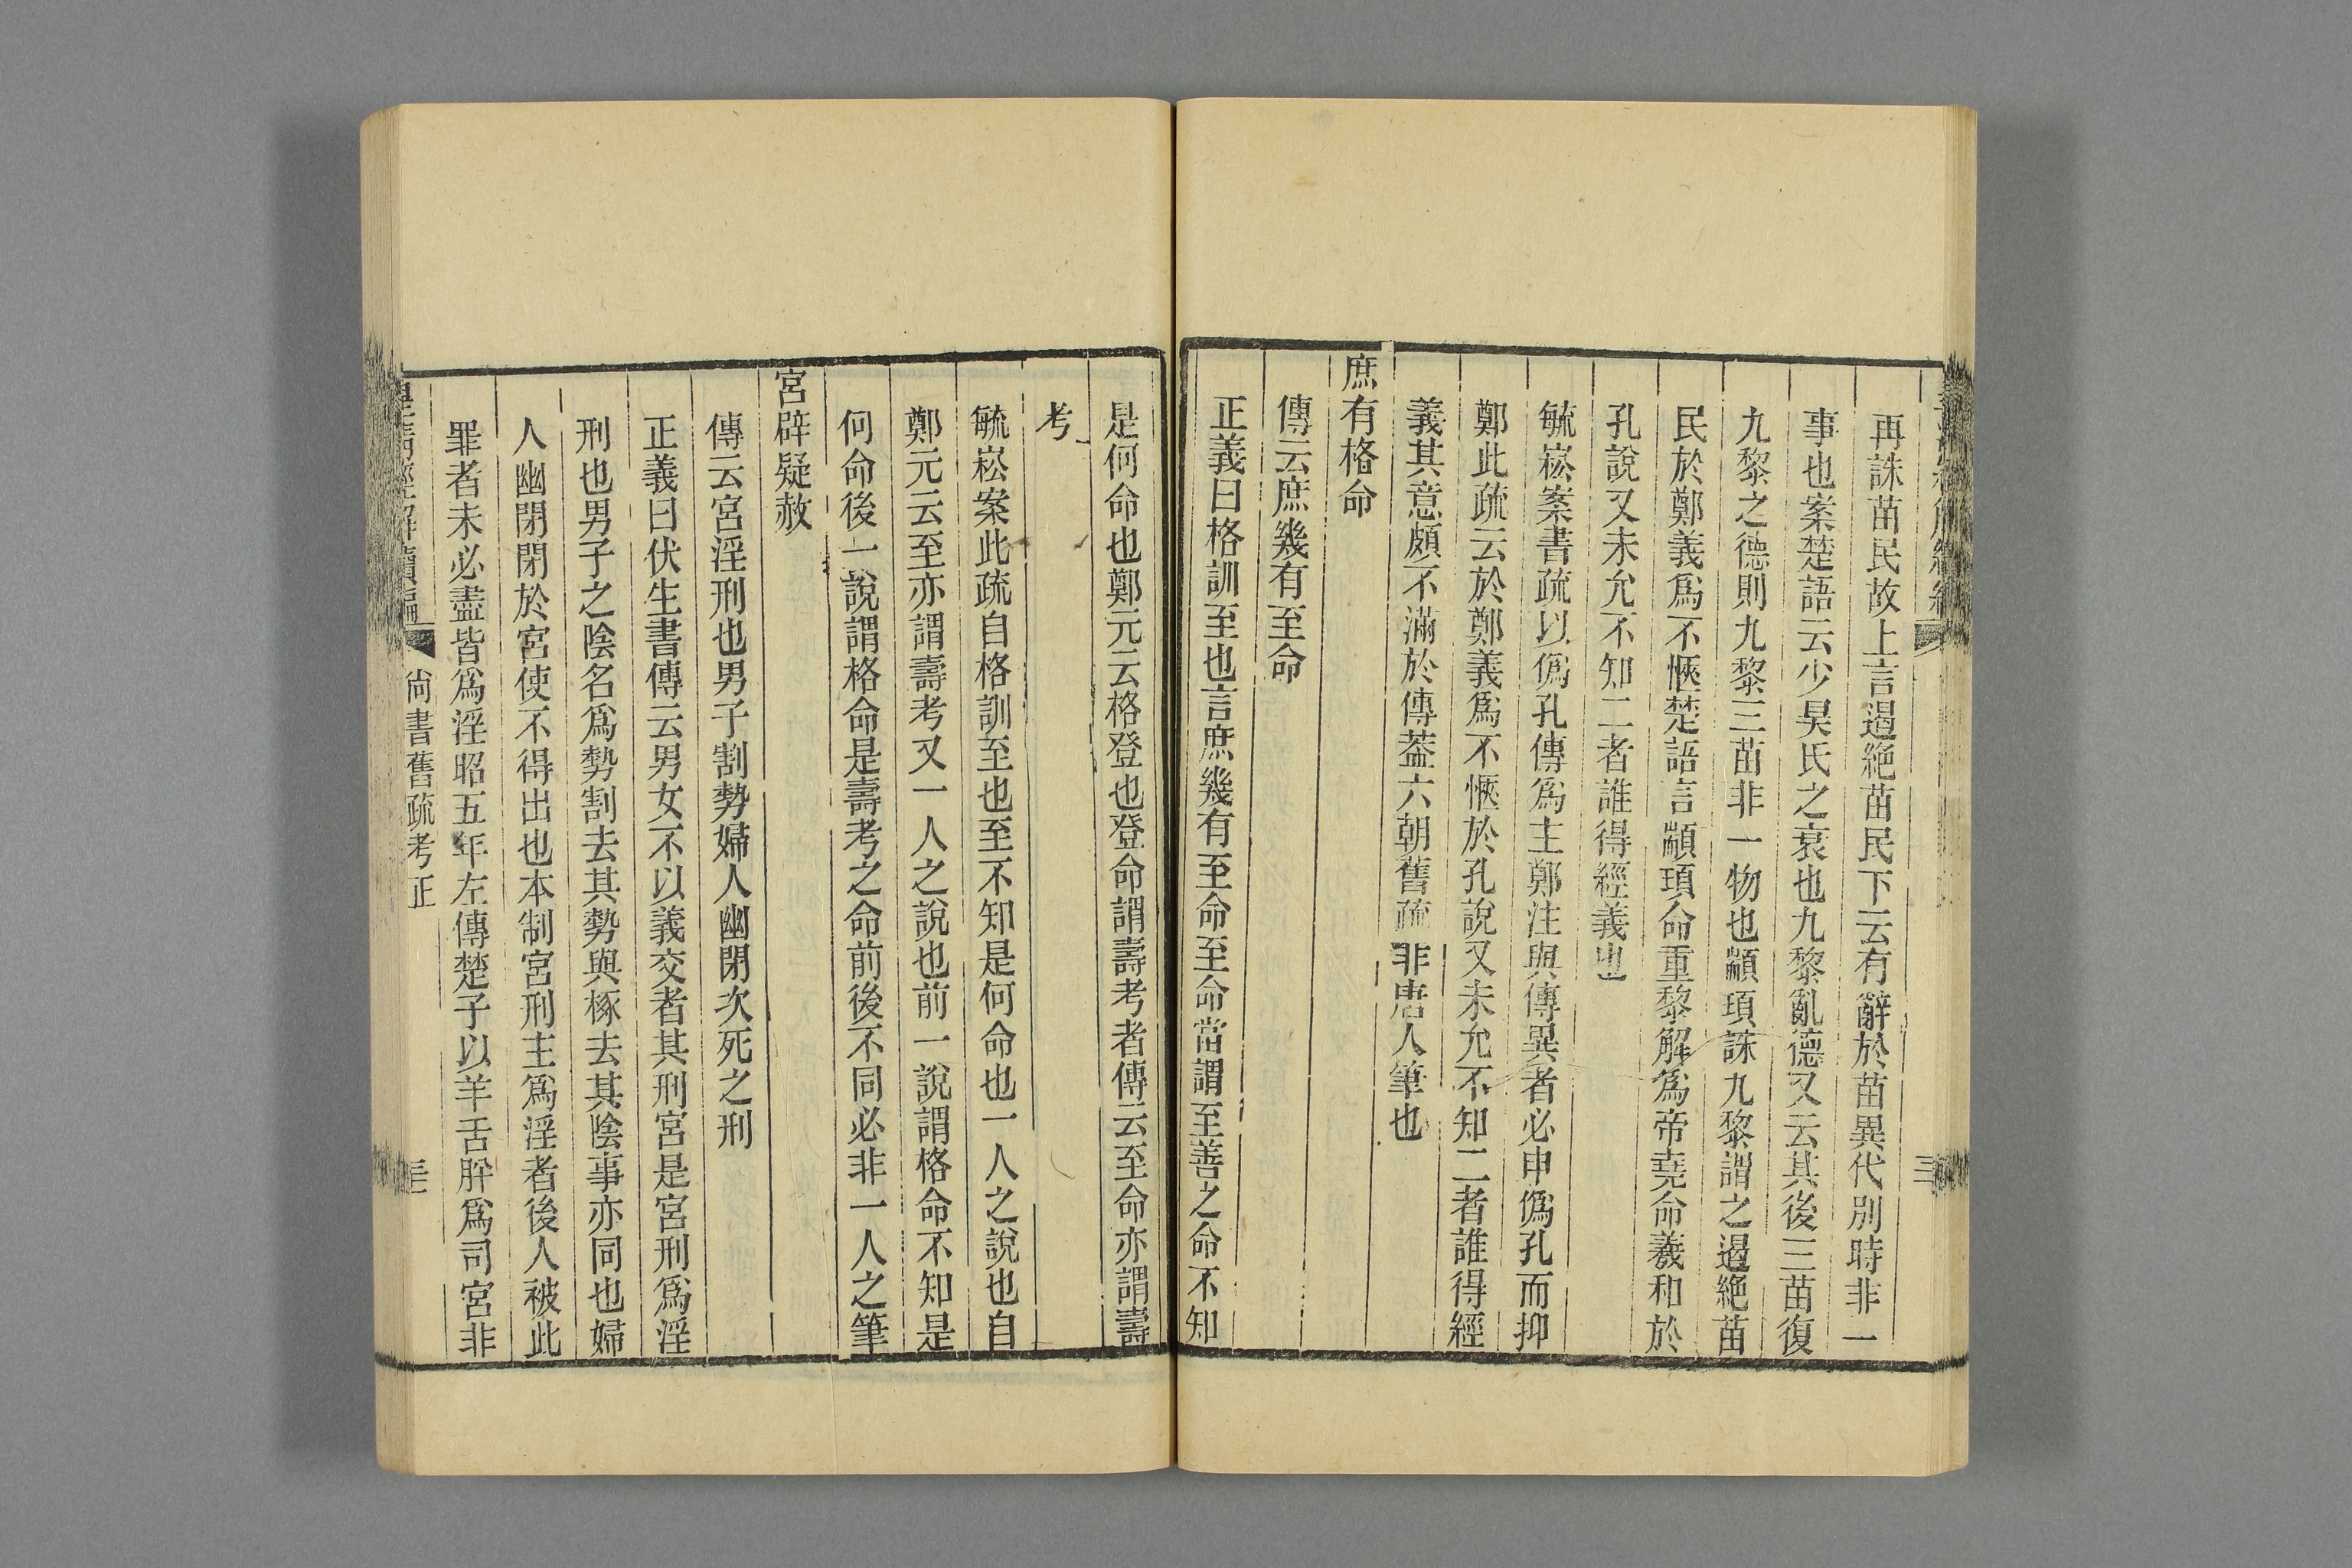 再誅苗民故上言遏絶苗民下云有辭於苗異代别時非一
事也案楚語云少昊氏之衰也九黎亂德又云其後三苗復
九黎之德則九黎三苗非一物也顓頊誅九黎謂之遏絶苗
民於鄭義爲不愜楚語言顓頊命重黎解爲帝堯命羲和於
孔說又未允不知二者誰得經義也
毓崧案書疏以僞孔傳爲主鄭注與傳異者必申僞孔而抑
鄭此疏云於鄭義爲不愜於孔說又未允不知二者誰得經
義其意頗不滿於傳葢六朝舊疏非唐人筆也
庶有格命
傳云庶幾有至命
正義曰格訓至也言庶幾有至命至命當謂至善之命不知
是何命也鄭元云格登也登命謂壽考者傳云至命亦謂壽
考
毓崧案此疏自格訓至也至不知是何命也一人之說也自
鄭元云至亦謂壽考又一人之說也前一說謂格命不知是
何命後一說謂格命是壽考之命前後不同必非一人之筆
宮辟疑赦
傳云宮淫刑也男子割勢婦人幽閉次死之刑
正義曰伏生書傳云男女不以義交者其刑宮是宮刑爲淫
刑也男子之陰名爲勢割去其勢與椓去其陰事亦同也婦
人幽閉閉於宮使不得出也本制宮刑主爲淫者後人被此
罪者未必盡皆爲淫昭五年左傳楚子以羊舌肸爲司宮非
皇清經解續編 尙書舊疏考正